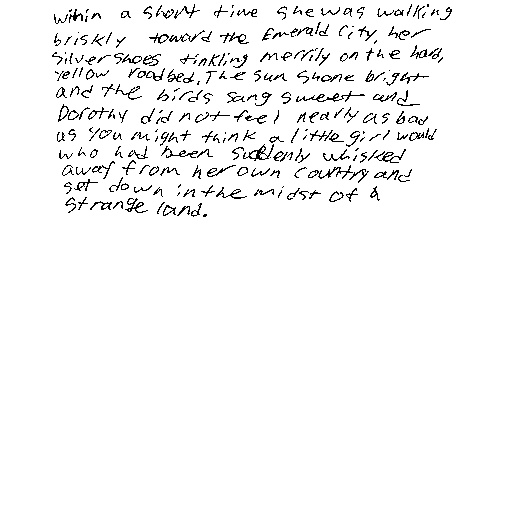 within a short time she was walking
briskly toward the Emerald City, her
Silver Shoes tinkling merrily on the hard,
yellow roadbed. The sun shone bright
and the birds sang sweet and
Dorothy did not feel nearly as bad
as you might think a little girl would
who had been suddenly whisked
away from her own country and
set down in the midst of a
strange land.